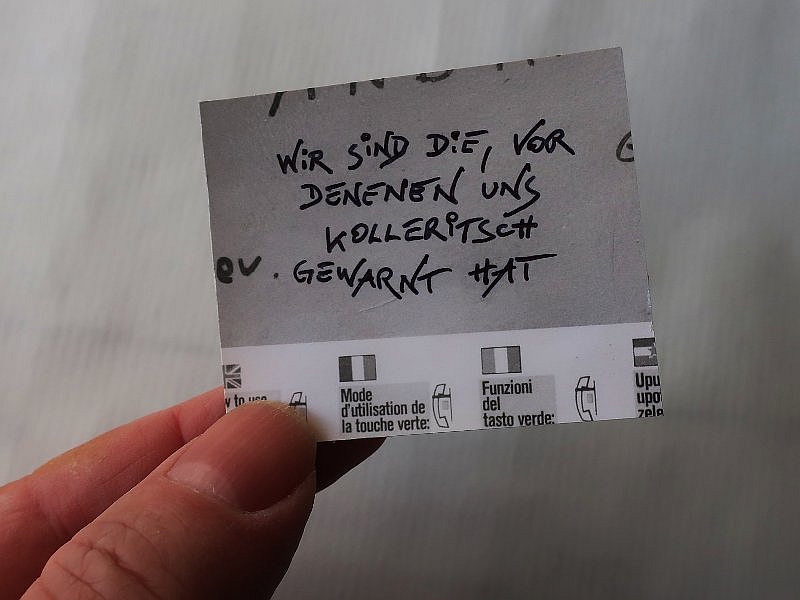 WIR SIND DIE, VOR
DENENEN UNS
KOLLERITSCH
ev. GEWARNT HAT
Mode
d'utilisation de
la touche verte:
Funzioni
del
tasto verde:
Upu
upo
zele